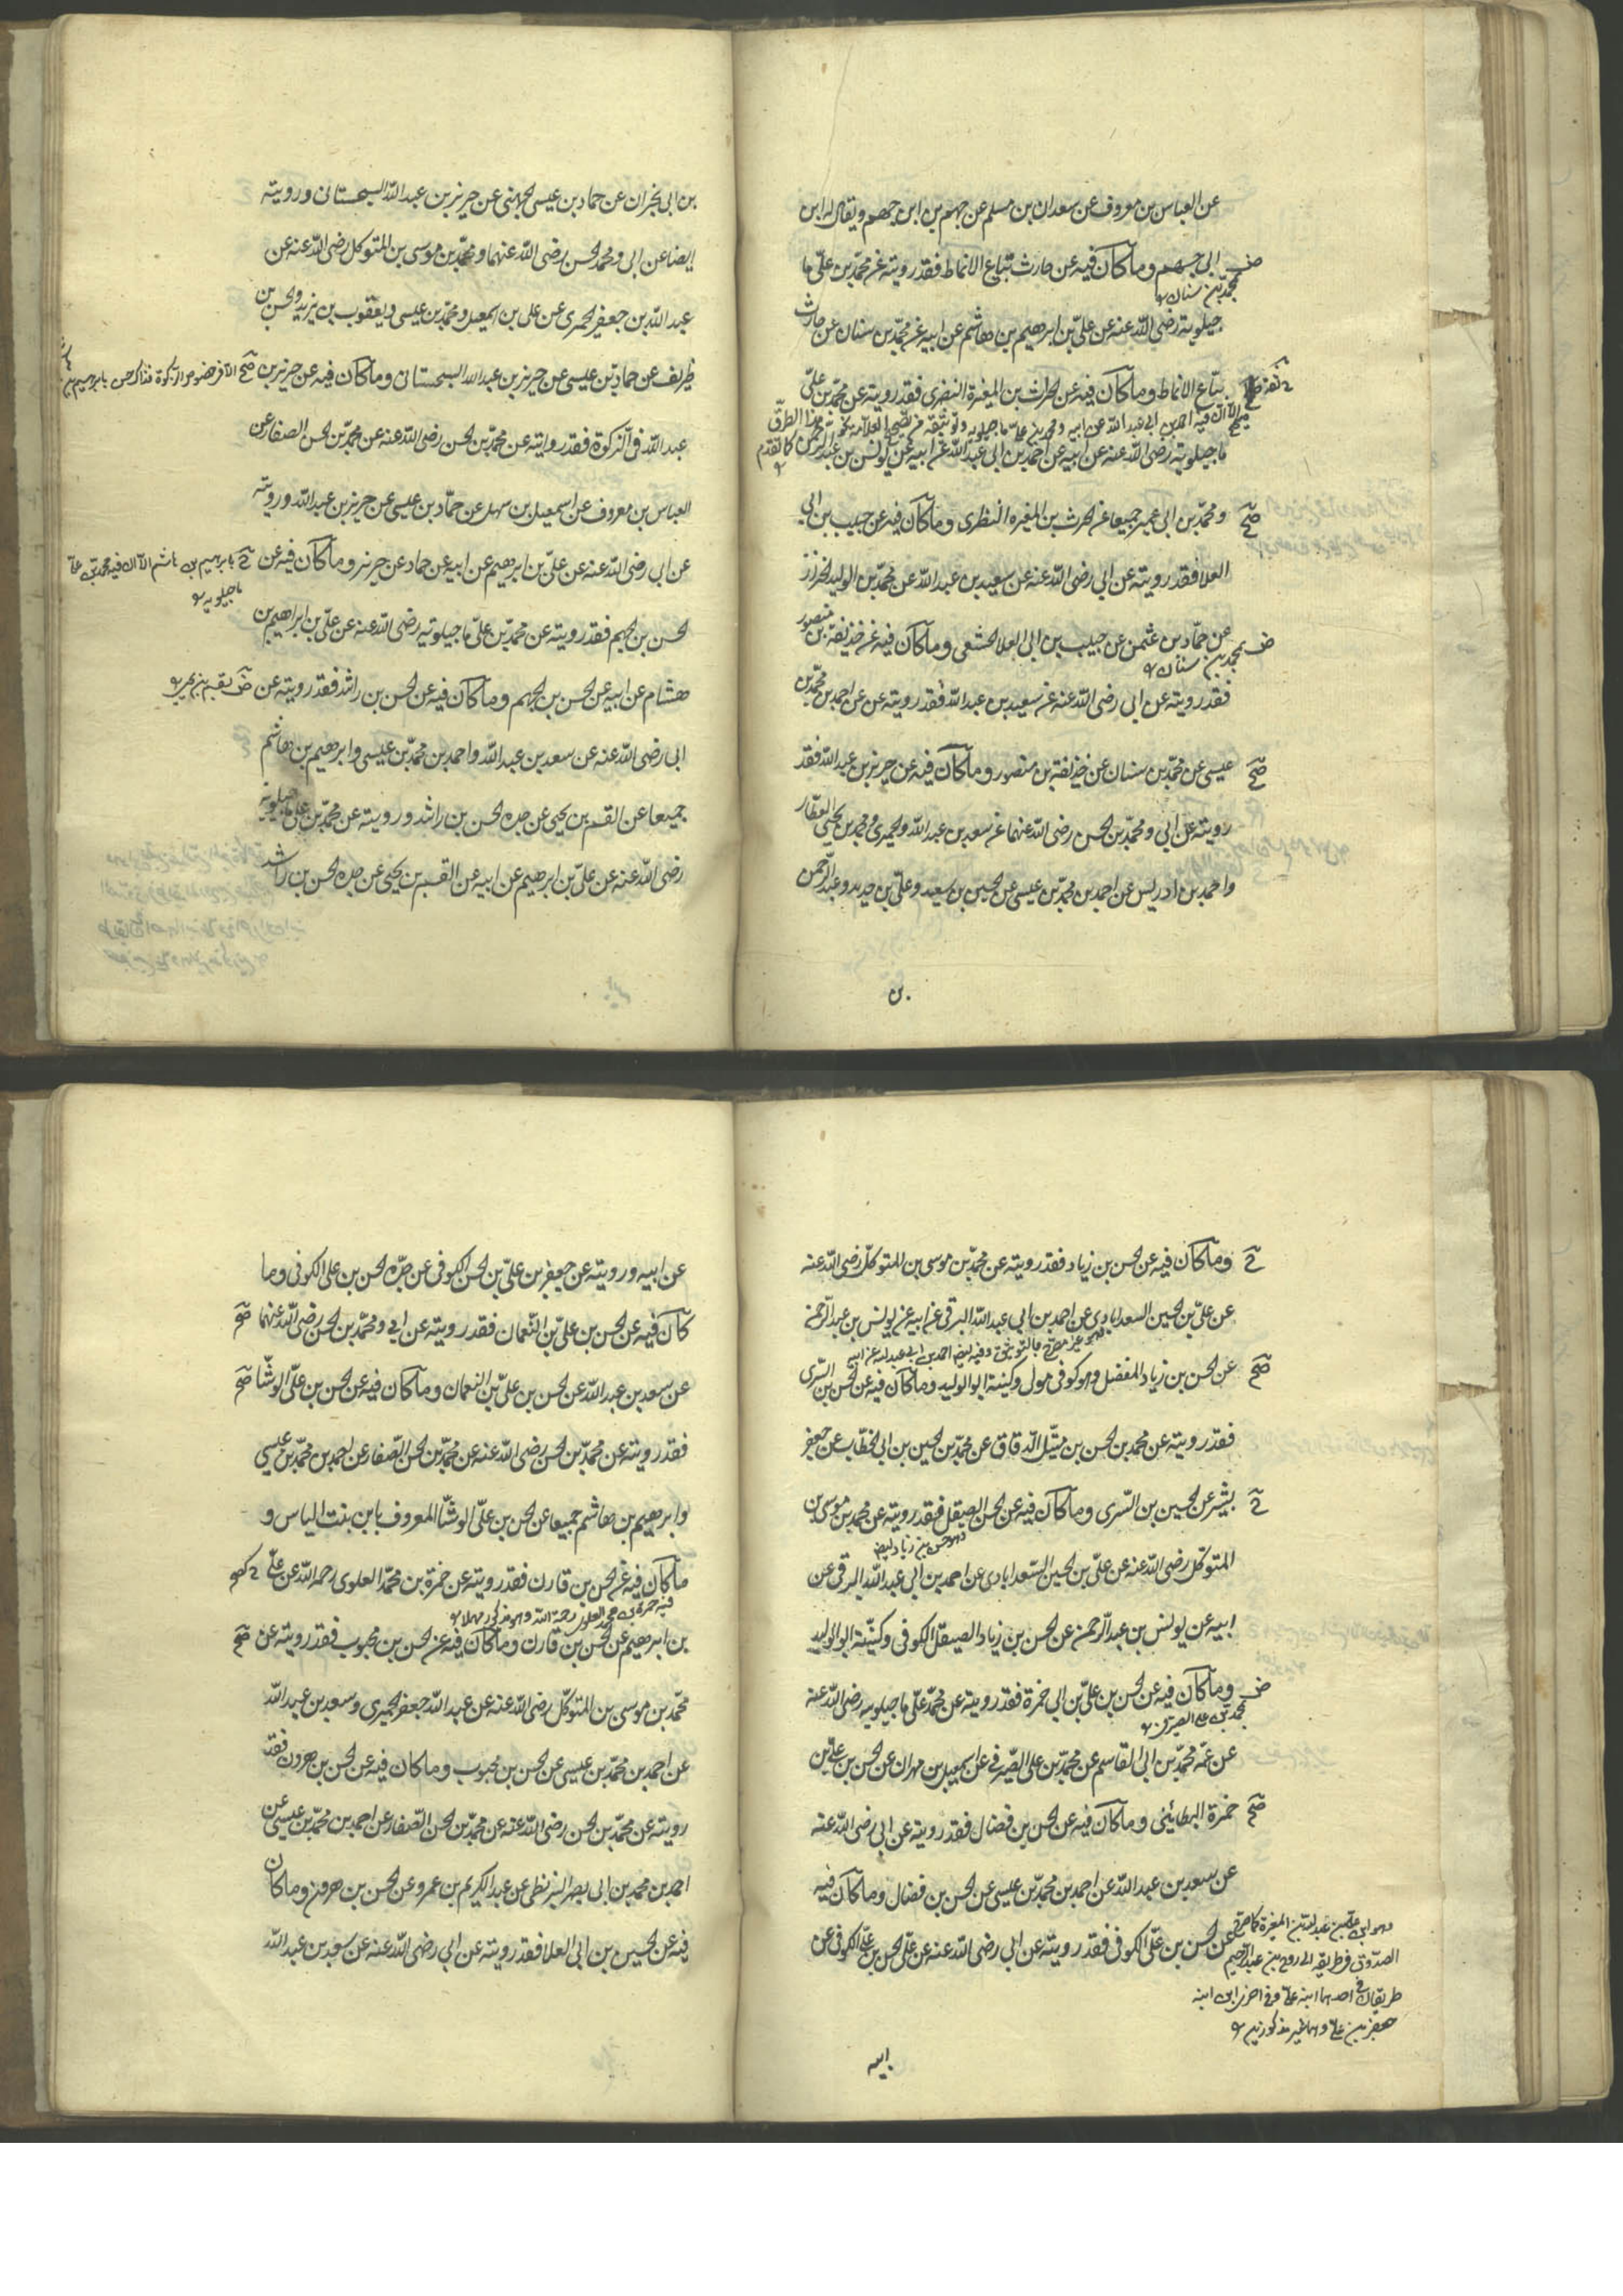 عن العباس بن معروف عن سعدان بن مسلم عن جهم بن ابن جهم ويقال له ابن
ابى جهم وماكان فيه عن حارث بتباع الانماط فقد رويته عن محمد بن على ما
ضـ بمحمد بن سنان
جيلويه رضى الله عنه عن على بن ابرهيم بن هاشم عن ابيه عن محمد بن سنان عن حارث
بتباع الانماط وماكان فيه عن الحرث بن المغيرة النضرى فقد رويته عن محمد بن على
الا ان فيه احمد بن ابى عبد الله عن ابيه ومحمد بن على ماجيلويه
ماجيلويه رضى الله عنه عن ابيه عن احمد بن ابى عبد الله عن ابيه عن يونس بن عبد الرحمن
صح ومحمد بن ابى عمير جميعا عن الحرث بن المغيره النظرى وماكان فيه عن حبيب بن ابى
العلا فقد رويته عن ابى رضى الله عنه عن سعيد بن عبد الله عن محمد بن الوليد الخزاز
عن حماد بن عثمن عن حبيب بن ابى العلا الخثعمى وماكان فيه عن حذيفة بن منصور
ضـ بمحمد بن سنان
فقد رويته عن ابى رضى الله عنه عن سعيد بن عبد الله فقد رويته عن عن احمد بن محمد بن
صح عيسى عن محمد بن سنان عن حذيفة بن منصور وماكان فيه عن حريز بن عبد الله فقد
رويته عن ابى ومحمد بن الحسن رضى الله عنهما عن سعيد بن عبد الله والحميرى ومحمد بن يحيى العطار
واحمد بن ادريس عن احمد بن محمد بن عيسى عن الحسين بن سعيد وعلى بن حديد وعبد الرحمن
بن
بن ابى نجران عن حماد بن عيسى الجهنى عن حريز بن عبد الله السجستانى ورويته
ايضا عن ابى ومحمد الحسن رضى الله عنهما ومحمد بن موسى بن المتوكل رضى الله عنه عن
عبد الله بن جعفر الحمرى عن على بن اسمعيل ومحمد بن عيسى ويعقوب بن يزيد والحسن بن
ظريف عن حماد بن عيسى عن حريز بن عبد الله السجستانى وماكان فيه عن حريز بن صح
عبد الله فى الزكوة فقد روايته عن محمد بن الحسن رضى الله عنه عن محمد بن الحسن الصفار عن
العباس بن معروف عن اسمعيل بن سهل عن حماد بن عيسى عن حريز بن عبد الله ورويته
عن ابى رضى الله عنه عن على بن ابرهيم عن ابيه عن حماد عن حريز وماكان فيه عن
بابرهيم بن هاشم الا ان فيه محمد بن على ماجيلويه
الحسن بن الجهم فقد رويته عن محمد بن على ماجيلويه رضى الله عنه عن على بن ابراهيم بن
هشام عن ابيه عن الحسن بن الجهم وماكان فيه عن الحسن بن راشد فقد رويته عن
ابى رضى الله عنه عن سعد بن عبد الله واحمد بن محمد بن عيسى وابرهيم بن هاشم
جميعا عن القسم بن يحيى عن جده الحسن بن راشد ورويته عن محمد بن على ماجيلويه
رضى الله عنه عن على بن ابرهيم عن ابيه عن القسم بن يحيى عن جده الحسن بن راشد
وماكان فيه عن الحسن بن زياد فقد رويته عن محمد بن موسى بن المتوكل رضى الله عنه
عن على بن الحسين السعدابادى عن احمد بن ابى عبد الله البرقى عن ابيه عن يونس بن عبد الرحمن
وفيه ايضا احمد بن ابى عبد الله عن ابيه
صح عن الحسن بن زياد المفضل وهو كوفى مولى وكنيته ابو الوليد وماكان فيه عن الحسن بن السرى
فقد رويته عن محمد بن الحسن بن متيل الدقاق عن محمد بن الحسين بن ابى الخطاب عن جعفر
بشير عن الحسين بن السرى وماكان فيه عن الحسن الصيقل فقد رويته عن محمد بن موسى بن
وهو حسن بن زياد ايضا
المتوكل رضى الله عنه عن على بن الحسين السعدابادى عن احمد بن ابى عبد الله البرقى عن
ابيه عن يونس بن عبد الرحمن عن الحسن بن زياد الصيقل الكوفى وكنيته ابو الوليد
ضـ وماكان فيه عن الحسن بن على بن ابى حمزة فقد رويته عن محمد على ماجيلويه رضى الله عنه
بمحمد بن على الصيرفى
عن عمه محمد بن ابى القاسم عن محمد بن على الصيرفى عن اسمعيل بن مهران عن الحسن بن على بن
صح حمزة البطائنى وماكان فيه عن الحسن بن فضال فقد رويته عن ابى رضى الله عنه
عن سعد بن عبد الله عن احمد بن محمد بن عيسى عن الحسن بن فضال وماكان فيه
عن الحسن بن على الكوفى فقد رويته عن ابى رضى الله عنه عن على الحسن بن على الكوفى عن
وهو ابن على بن عبد الله بن المغيرة كما صرح
الصدوق فى طريقه الى روح بن عبد الرحيم
طريقان فى احدهما ابنه على وفى اخر ابن ابنه
جعفر بن على وهما غير مذكورين
ابيه
عن ابيه ورويته عن جعفر بن على بن الحسن الكوفى عن جده الحسن بن على الكوفى وما
كان فيه عن الحسن بن على بن النعمان فقد رويته عن ابى ومحمد بن الحسن رضى الله عنهما صح
عن سعد بن عبد الله عن الحسن بن على بن النعمان وماكان فيه عن الحسن بن على الوشا صح
فقد رويته عن محمد بن الحسن رضى الله عنه عن محمد بن الحسن الصفار عن احمد بن محمد بن عيسى
وابرهيم بن هاشم جميعا عن الحسن بن على الوشا المعروف بابن بنت الياس و
ماكان فيه عن الحسن بن قارن فقد رويته عن حمزة بن محمد العلوى رحمه الله عن على
فيه حمزة بن محمد العلوى رحمة الله وهو مذكور مهملا
بن ابرهيم عن الحسن بن قارن وماكان فيه عن الحسن بن محبوب فقد رويته عن صح
محمد بن موسى بن المتوكل رضى الله عنه عن عبد الله جعفر الحميرى وسعد بن عبد الله
عن احمد بن محمد بن عيسى عن الحسن بن محبوب وماكان فيه عن الحسن بن هرون فقد
رويته عن محمد بن الحسن رضى الله عنه عن محمد بن الحسن الصفار عن احمد بن محمد بن عيسى عن
احمد بن محمد بن ابى بصر البزنطى عن عبد الكريم بن عمرو عن الحسن بن هرون وماكان
فيه عن الحسين بن ابى العلا فقد رويته عن ابى رضى الله عنه عن سعد بن عبد الله